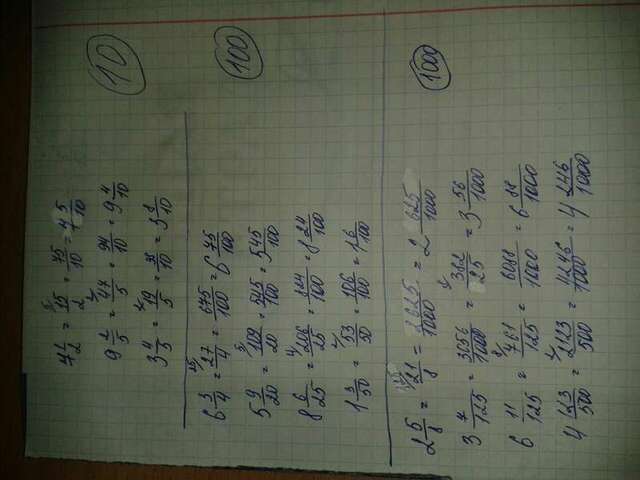 10
7 1/2 = 15/2 = 75/10 = 7 5/10
9 2/5 = 47/5 = 94/10 = 9 4/10
3 4/5 = 19/5 = 38/10 = 3 8/10
100
6 3/4 = 27/4 = 675/100 = 6 75/100
5 9/20 = 109/20 = 545/100 = 5 45/100
8 6/25 = 206/25 = 824/100 = 8 24/100
1 3/50 = 53/50 = 106/100 = 1 6/100
1000
2 5/8 = 21/8 = 2625/1000 = 2 625/1000
3 7/125 = 3056/1000 = 382/25 = 3 56/1000
6 11/125 = 761/125 = 6088/1000 = 6 88/1000
4 123/500 = 2123/500 = 4246/1000 = 4 246/1000